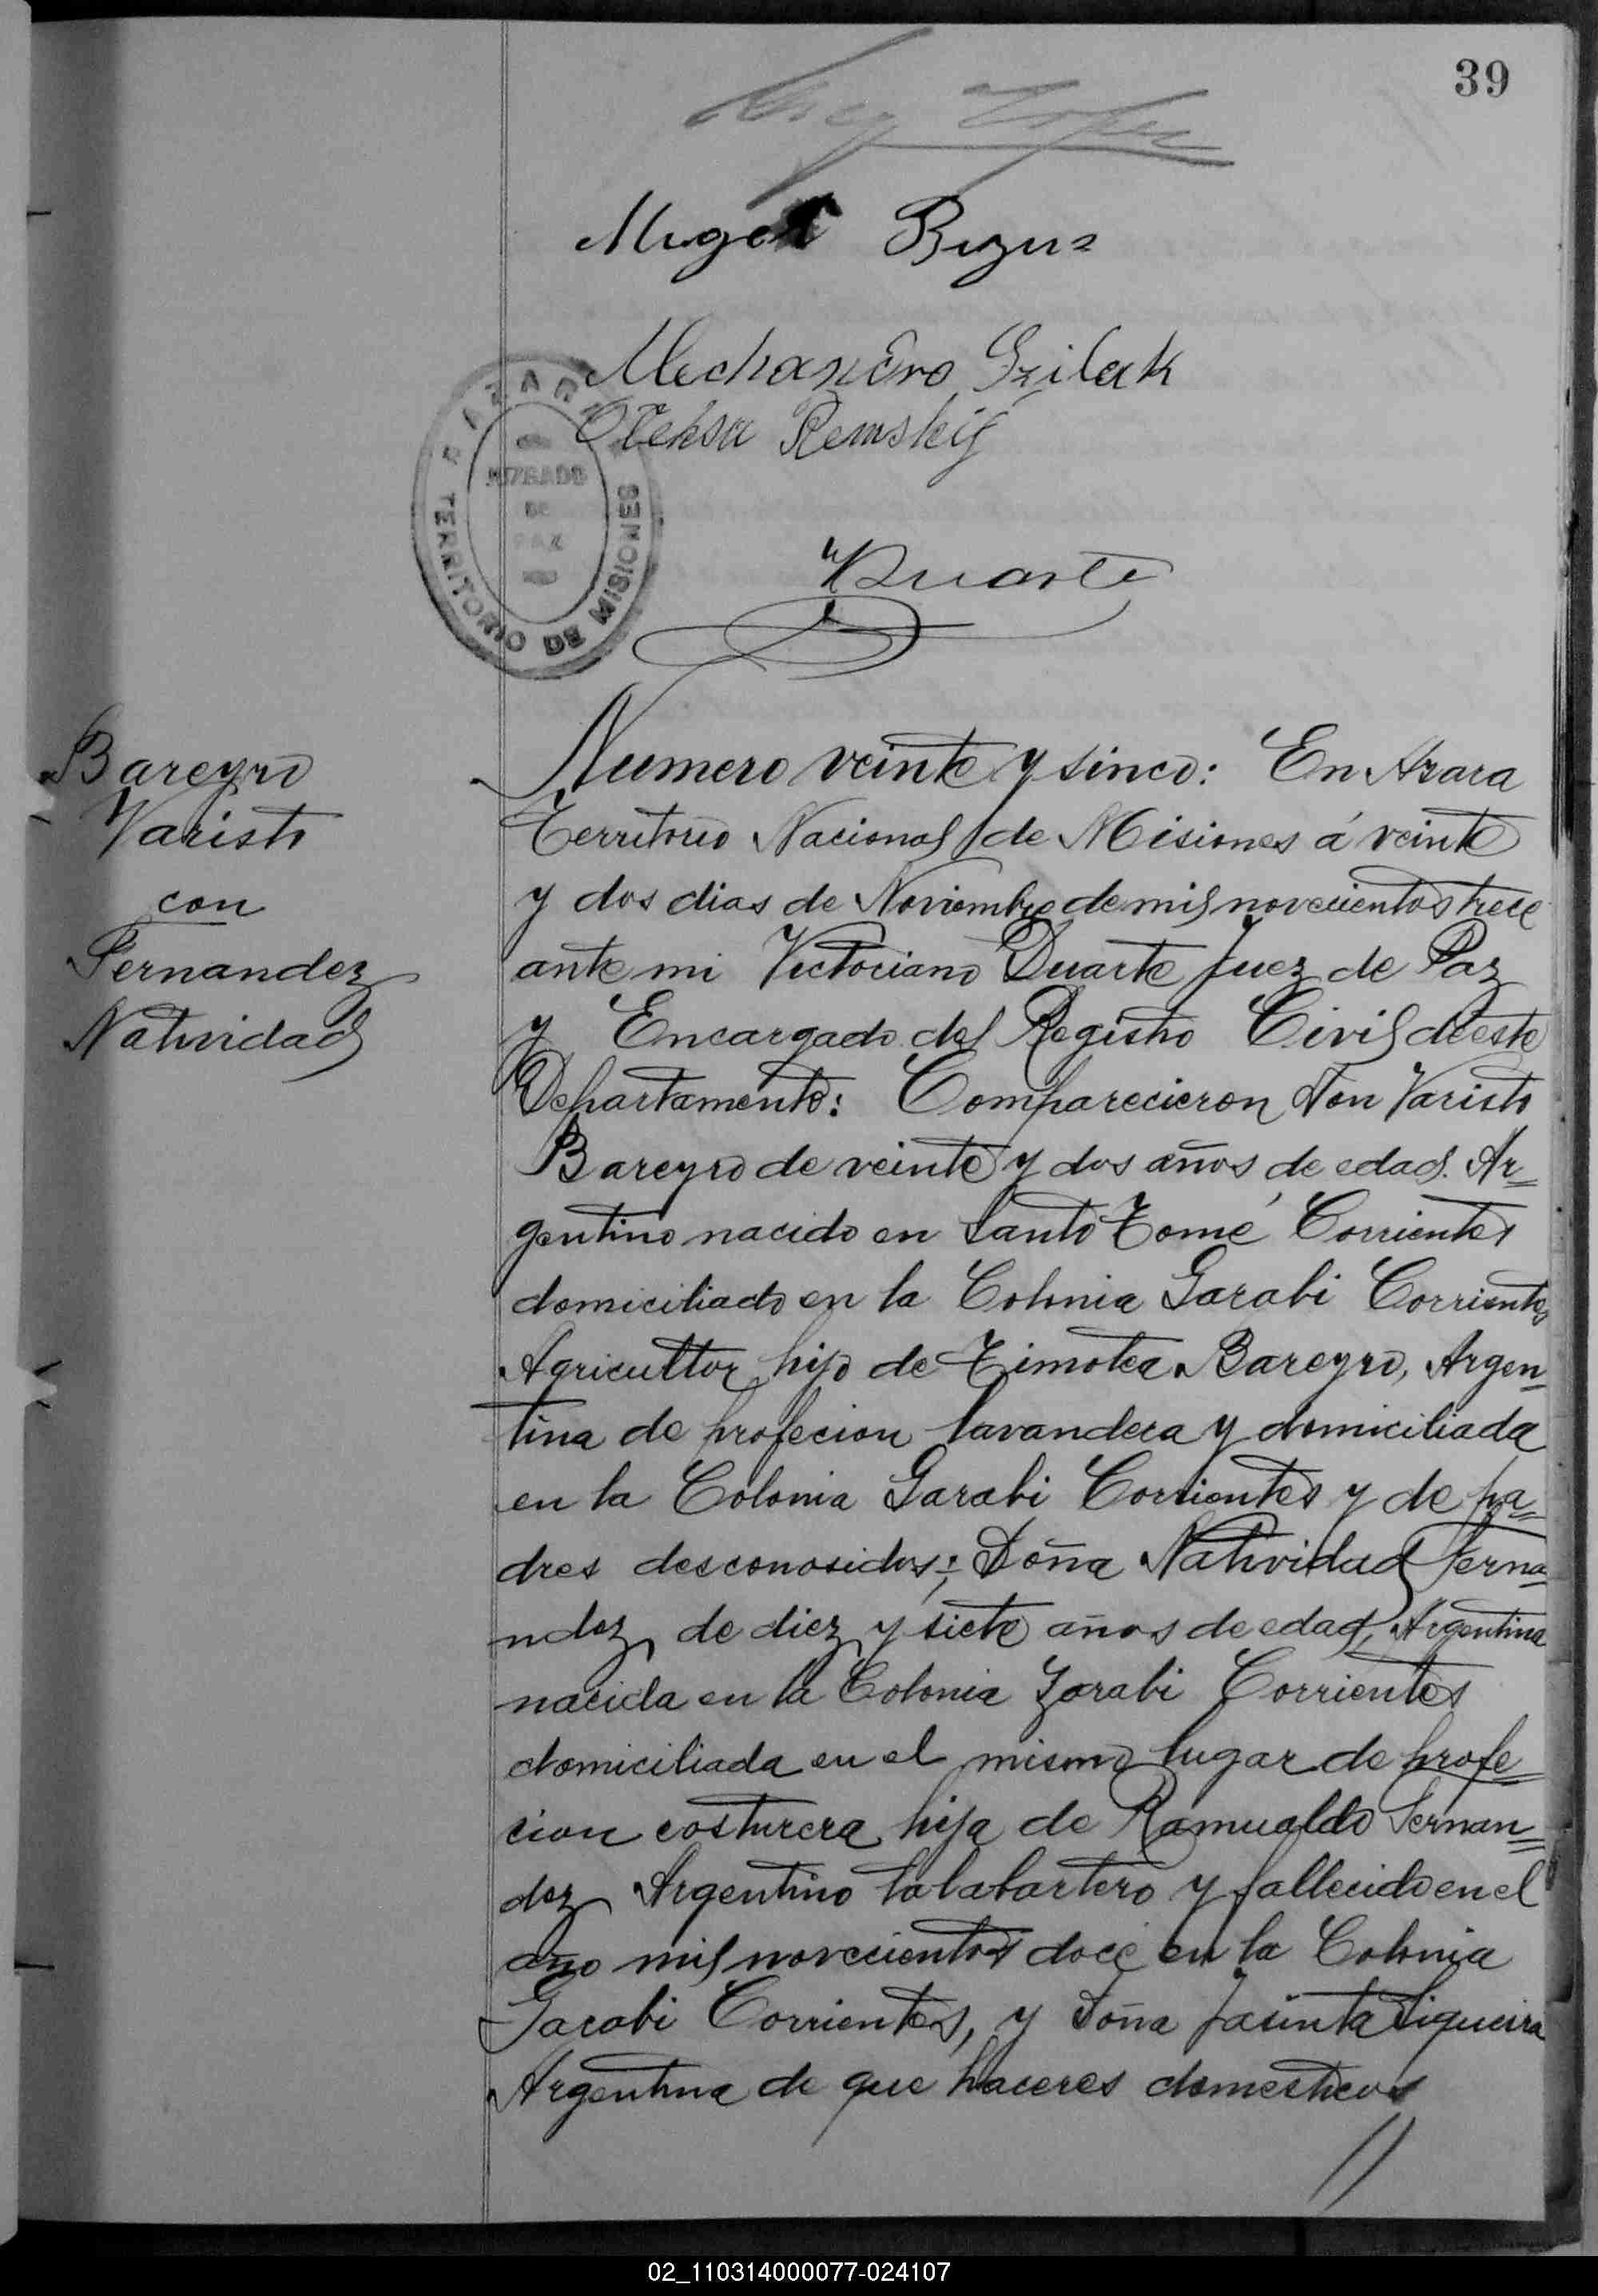 39
Bizus
Duarte
AZARA
JUZGADO
DE
PAZ
TERRITORIO DE MISIONES
Bareyro
Varisto
con
Fernandez
Natividad
Numero veinte y sinco: En Azara
Territorio Nacional de Misiones á veinte
y dos dias de Noviembre de mil novecientos trece
ante mi Victoriano Duarte Juez de Paz
y Encargado del Registro Civil de este
Departamento: Comparecieron Don Varisto
Bareyro de veinte y dos años de edad. Ar=
gentino nacido en Santo Tomé Corrientes
domiciliado en la Colonia Garabi Corrientes
Agricultor hijo de Timotea Bareyro, Argen=
tina de profecion lavandera y domiciliada
en la Colonia Garabi Corrientes y de pa=
dres desconosidos; Doña Natividad Ferna=
ndez de diez y siete años de edad, Argentina
nacida en la Colonia Garabi Corrientes
domiciliada en el mismo lugar de profe=
cion costurera hija de Romualdo Fernan=
dez Argentino talabartero y fallecido en el
año mil novecientos doce en la Colonia
Garabi Corrientes, y Doña Jasinta Siqueira
Argentina de que haceres domesticos
//
02_110314000077-024107